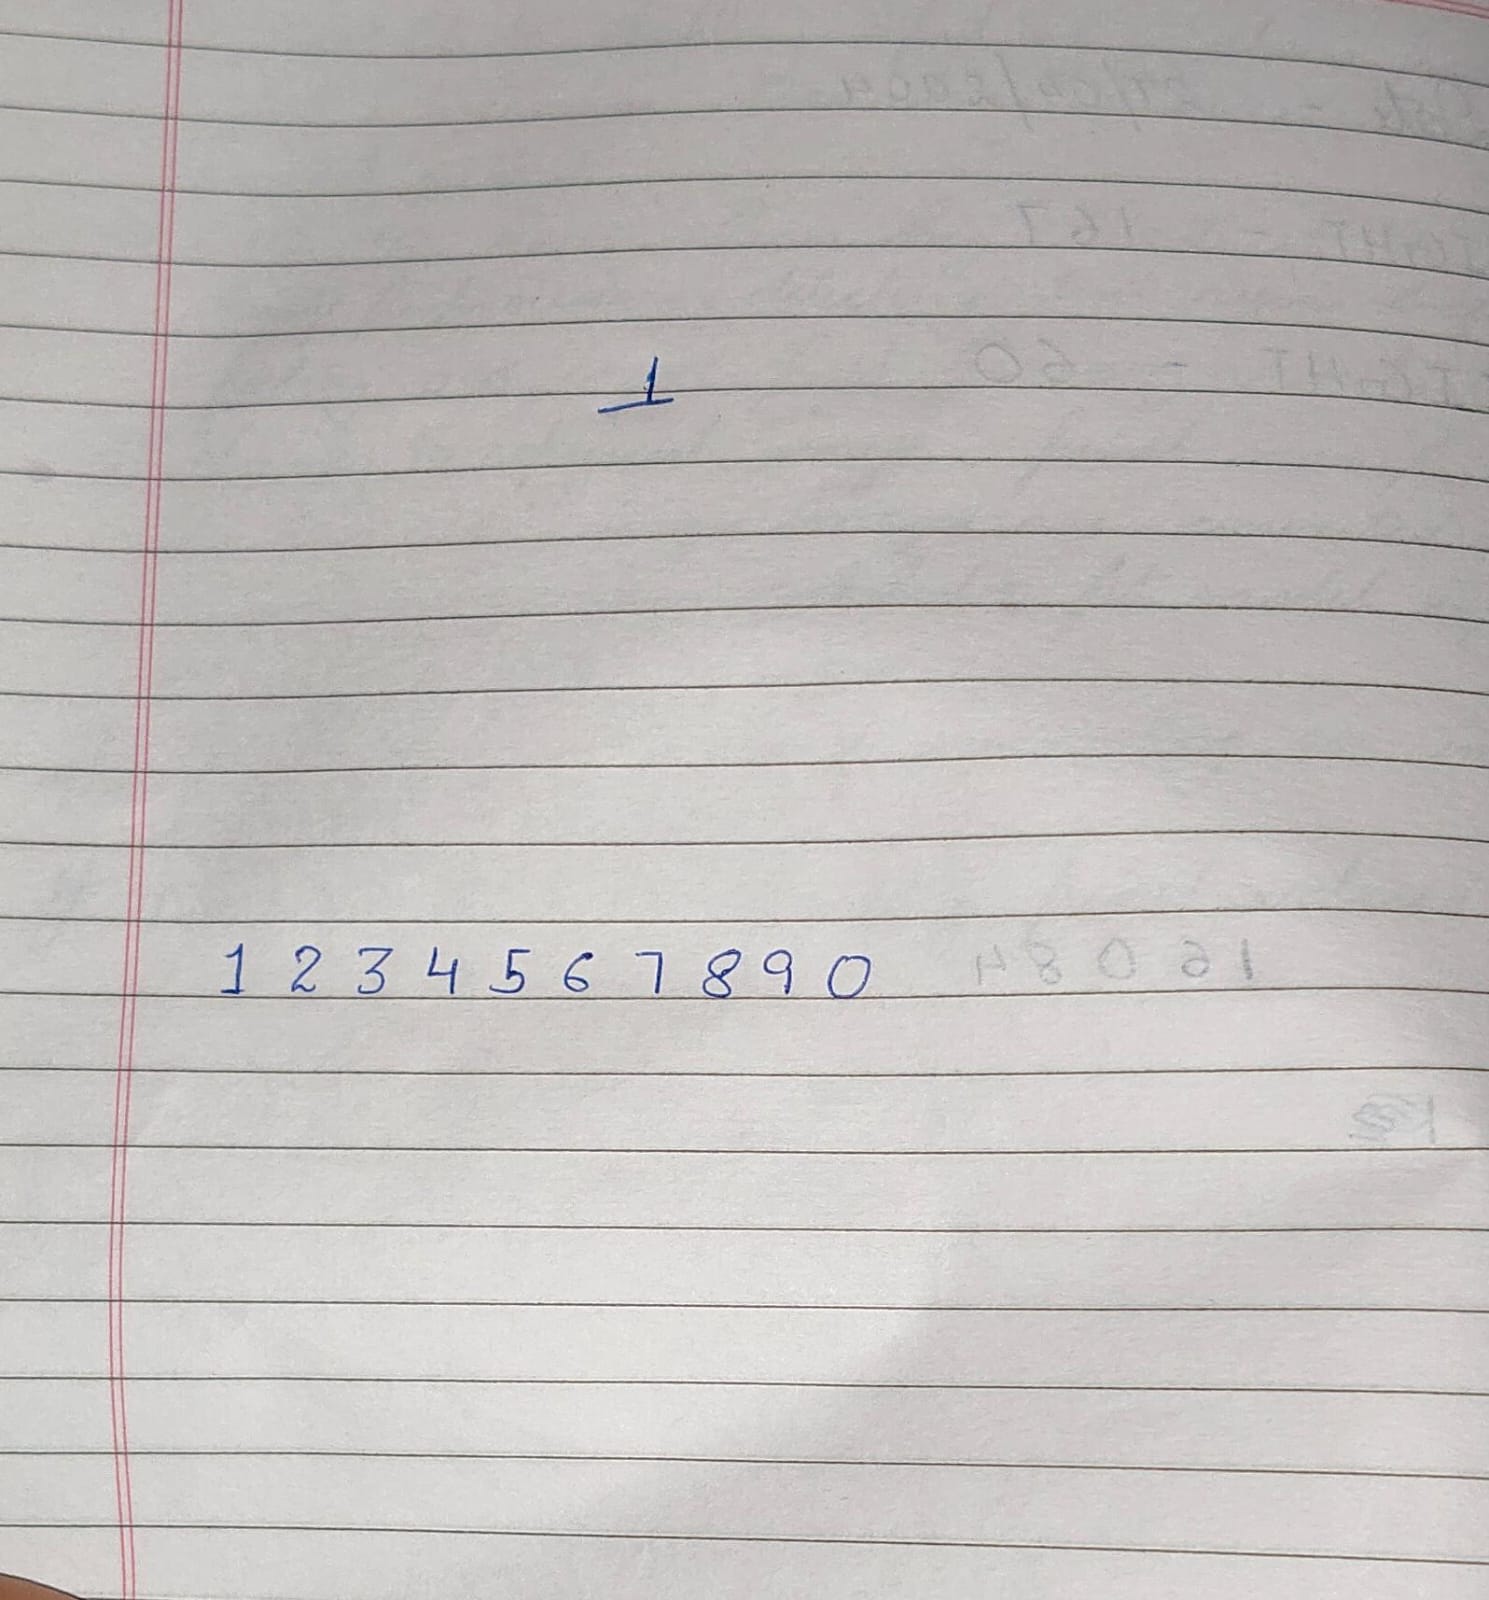 1
1 2 3 4 5 6 7 8 9 0